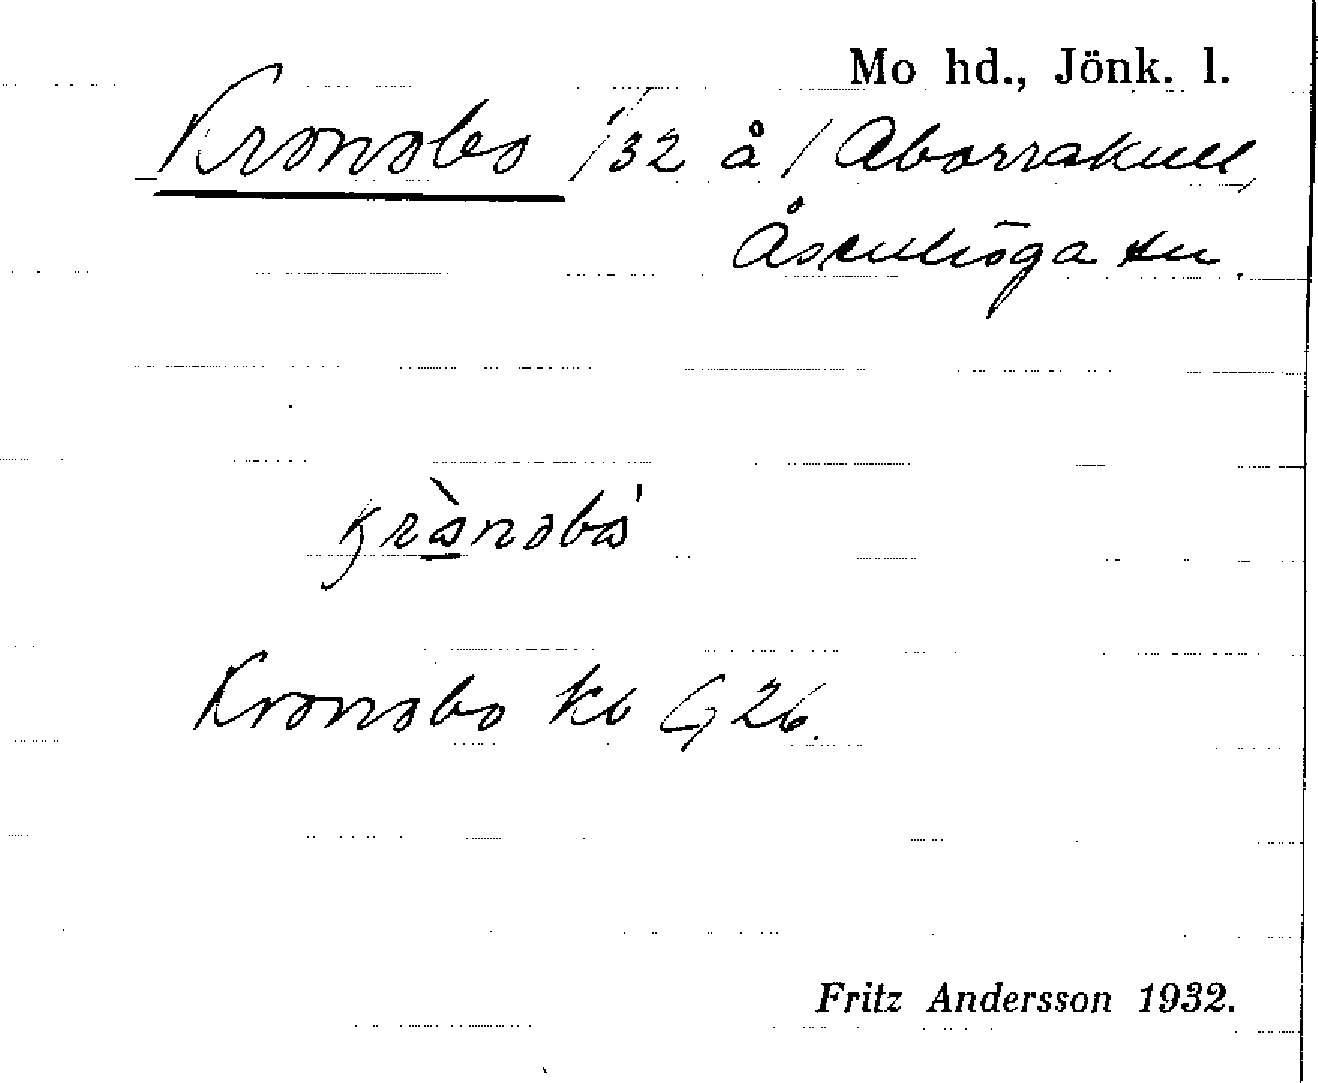 Mo hd., Jönk. l.
Kronobo 1/32 å / Aborrakull,
Åsenhöga sn.
krònsbò
Kronobo kb G 26.
Fritz Andersson 1932.